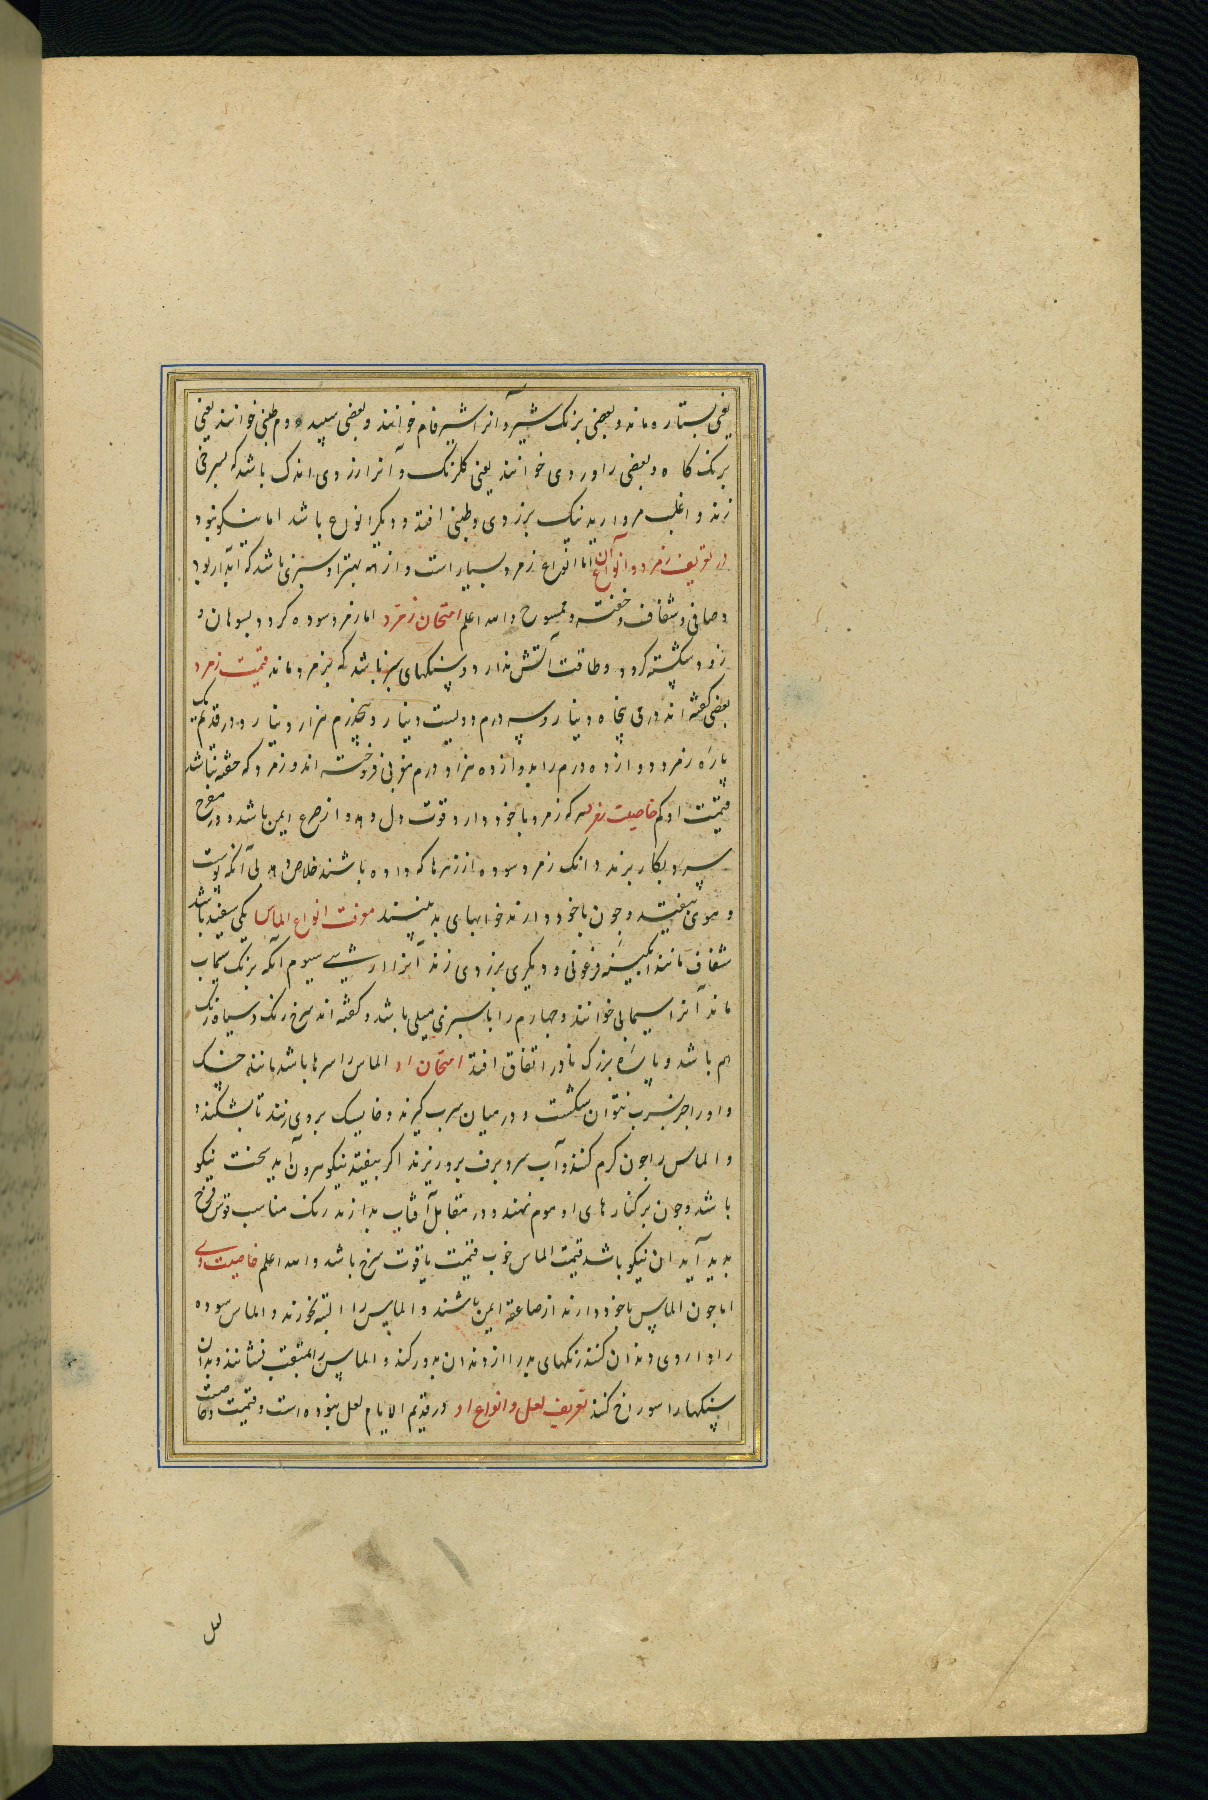 یعنی بستاره ماند و بعضی برنک شیر و آنرا شیرفام خوانند و بعضی سپید دوم طبنی خوانند یعنی
برنک کاه و بعضی را وردی خوانند یعنی کلرنک و آنرا زردی اندک باشد که بسرخی
زند و اغلب مروارید نیک بزردی و طبنی افتد و دیکر انواع باشد اما نیکو نبود
در تعریف زمرد و انواع آن اما انواع زمرد بسیار است و از همه بهتر او سبزی باشد که آبدار بود
و صافی و شفاف و خفته و ممسوح والله اعلم امتحان زمرد اما زمرد سوده کردد بسوهان و
زود شکسته کردد و طاقت آتش ندارد و سنکهای سبز باشد که بزمرد ماند قیمت زمرد
بعضی کفته اند درمی پنجاه دینار و سه درم دویست دینار و پنجدرم هزار دینار و در قدیم یک
پاره زمرد دوازده درم را بدوازده هزار درم مغربی فروخته اند و زمرد که خفته نباشد
قیمت او کم خاصیت زمرد هر که زمرد با خود دارد قوت دل دهد و از صرع ایمن باشد و در مفرح
سرد بکار برند و انک زمرد سوده از زهرها که داده باشند خلاص دهد بی آنکه پوست
و موی بیفتد و چون با خود دارند خوابهای بد نبینند معرفت انواع الماس یکی سفید باشد
شفاف مانند ابکینه فرعونی و دیکری بزردی زند آنرا ... سیوم آنکه برنک سیماب
ماند آنرا سیمابی خوانند و چهارم را با سبزی میلی باشد و کفته اند سرخ رنک و سیاه رنک
هم باشد و پاره بزرک نادر اتفاق افتد امتحان او الماس را سرها باشد مانند خسک
و او را جز بسرب نتوان شکست و در میان سرب کیرند و خایسک بروی زنند تا بشکند و
و الماس را چون کرم کنند و آب سرد برف برو ریزند اکر بیفتد نیکو بیرون آید سخت نیکو
باشد و چون بر کنارهای او موم نهند و در مقابل آفتاب بدارند رنک مناسب قوس قزح
بدید آید ان نیکو باشد قیمت الماس خوب قیمت یاقوت سرخ باشد والله اعلم خاصیت وی
اما چون الماس با خود دارند از صاعقه ایمن باشند و الماس را البته نخورند و الماس سوده
را داروی دندان کنند زنکهای بد را از دندان بدور کند و الماس را بمثقب نشانند و بدان
سنکها را سوراخ کنند تعریف لعل و انواع او در قدیم الایام لعل نبوده است و قیمت و خاصیت
لعل